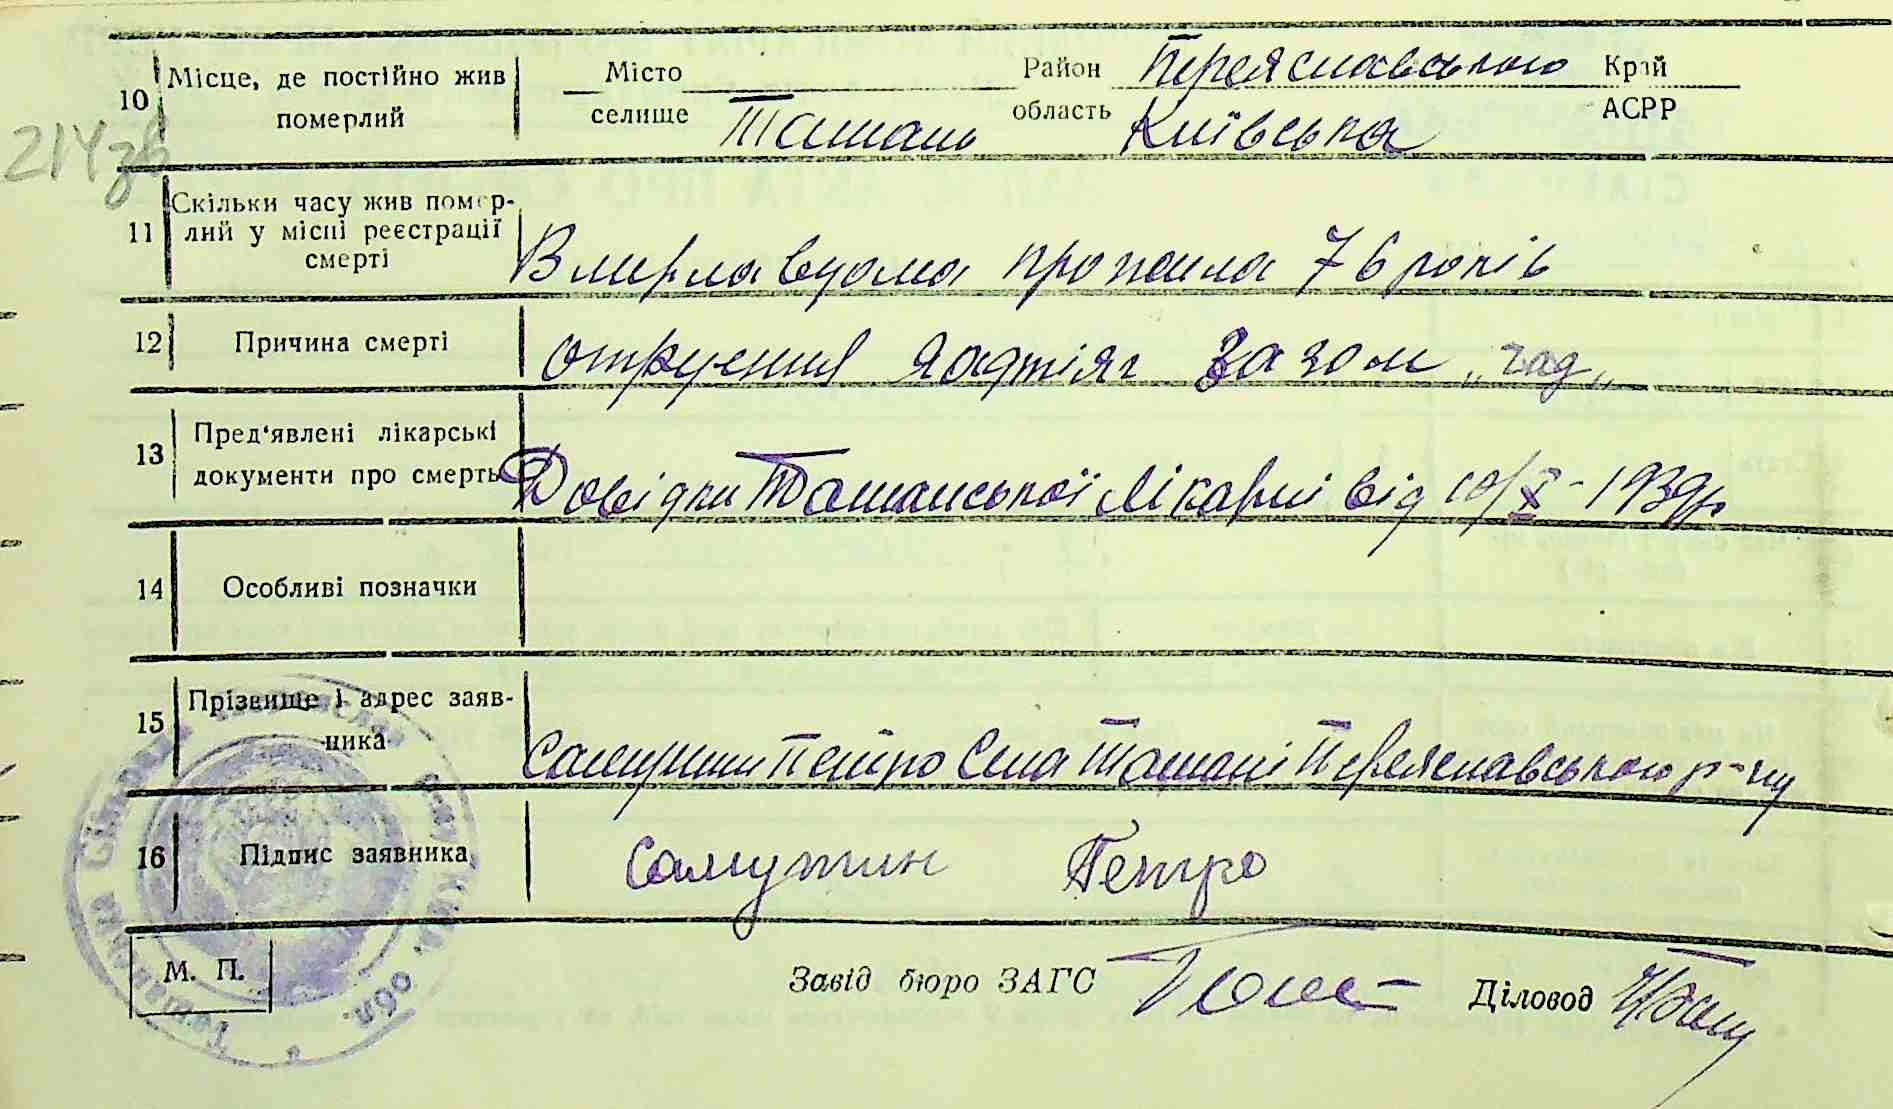 Місто Район Переяславського Край
10 Місце, де постійно жив померлий селище Ташань область Київська АСРР
214зв
11 Скільки часу жив помер-
лий у місці реєстрації
смерті
Вмерла вдома прожила 76 років
12 Причина смерті отруєння газом „гад„
13 Пред'явлені лікарські
документи про смерть
Довідки Ташанської лікарні від 10/X-1939р.
14 Особливі позначки
15 Прізвище і адрес заяв-
ника
Петро Села Ташані Переяславського р-ну
16 Підпис заявника Самутин Петро
М. П. Завід бюро ЗАГС Діловод
Ташанська Сільська обл.